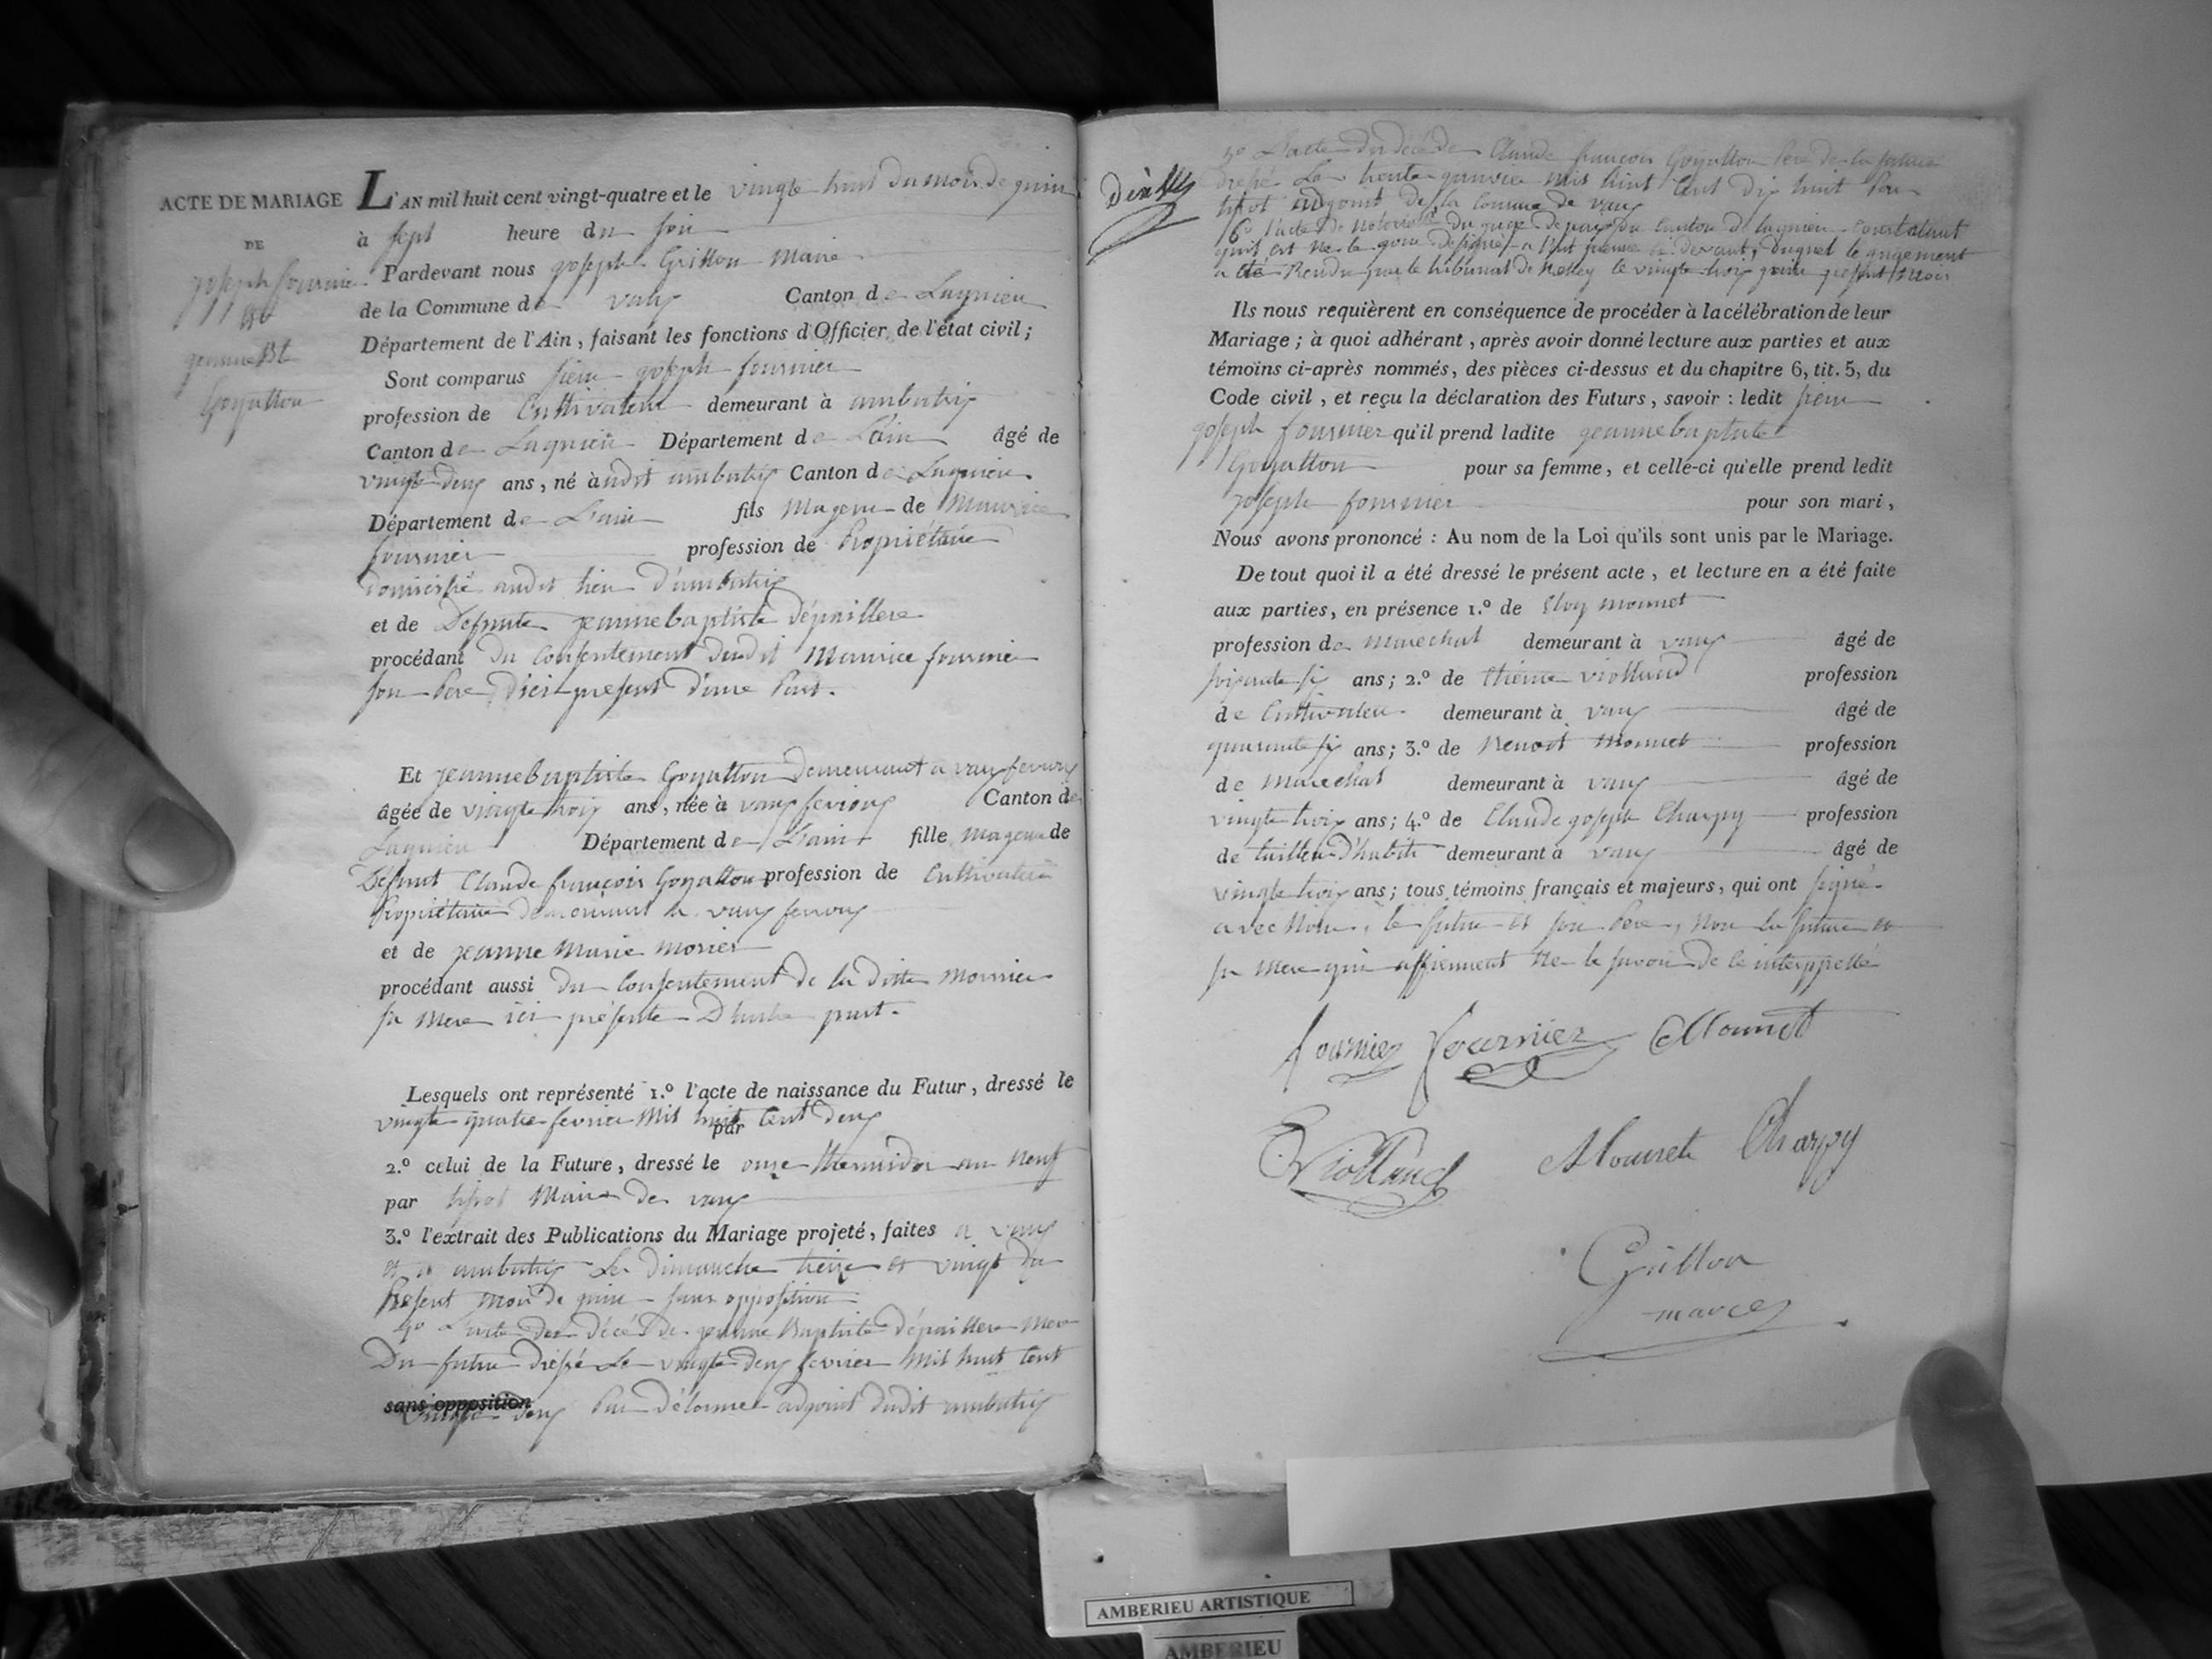 ACTE DE MARIAGE
DE
joseph fournier
et
jeanne Bte
Goyatton
L'AN mil huit cent vingt-quatre et le vingte huit du mois de juin
à sept heure du soir
Pardevant nous joseph Grillon Maire
de la Commune de vaux Canton de Lagnieu
Département de l'Ain, faisant les fonctions d'Officier de l'état civil;
Sont comparus sieur joseph fournier
profession de Cultivateur demeurant à ambutrix
Canton de Lagnieu Département de L'ain âgé de
vingte deux ans, né à audit ambutrix Canton de Lagnieu
Département de L'ain fils Mageur de Maurice
fournier profession de Propriétaire
domicilié audit lieu d'ambutrix
et de Defunte jeanne baptiste dépaillere
procédant du Consentement dudit Maurice fournier
son Pere ici present d'une Part.
Et jeanne baptiste Goyatton demeurant a vaux fevroux
âgée de vingte trois ans, née à vaux fevroux Canton de
Lagnieu Département de L'ain fille Mageure de
Défunt Claude françois Goyatton profession de Cultivateur
Propriétaire demeurant a vaux fevroux
et de jeanne Marie monier
procédant aussi du Consentement de la ditte monnier
sa Mere ici présente D'autre part.
Lesquels ont représenté 1.º l'acte de naissance du Futur, dressé le
vingte quatre fevrier Mil huit Cent deux
par
2.º celui de la Future, dressé le onze thermidor an neuf
par Maire de vaux
3.º l'extrait des Publications du Mariage projeté, faites a vaux
et a ambutrix Les dimanche treize et vingt du
Présent mois de juin sans opposition
4º L'acte de décés de jeanne Baptiste dépaillere Mere
Du futur dressé Le vingte deux fevrier Mil huit Cent
sans opposition
vingte deux Par Délorme adjoint dudit ambutrix
5º L'acte du décé de Claude françois Goyatton Pere de la future
dressé Le trente janvier Mil huit Cent dix huit Par
adjoint de la Commune de vaux
6º l'acte de Notoriété du juge de paix du Canton de lagnieu Constatant
qu'il est né le jour désigné ci devant, duquel le jugement
a été Rendu par le tribunal de Belley le vingte trois juin present Mois
Ils nous requièrent en conséquence de procéder à la célébration de leur
Mariage; à quoi adhérant, après avoir donné lecture aux parties et aux
témoins ci-après nommés, des pièces ci-dessus et du chapitre 6, tit. 5, du
Code civil, et reçu la déclaration des Futurs, savoir: ledit sieur
joseph fournier qu'il prend ladite jeanne baptiste
Goyatton pour sa femme, et celle-ci qu'elle prend ledit
joseph fournier pour son mari,
Nous avons prononcé: Au nom de la Loi qu'ils sont unis par le Mariage.
De tout quoi il a été dressé le présent acte, et lecture en a été faite
aux parties, en présence 1.º de Eloy monnet
profession de marechal demeurant à vaux âgé de
soixante six ans; 2.º de Etienne viollaud profession
de Cultivateur demeurant à vaux âgé de
quarante six ans; 3.º de Benoit Monnet profession
de Marechal demeurant à vaux âgé de
vingte trois ans; 4.º de Claude joseph Charpy profession
de tailleur d'habits demeurant à vaux âgé de
vingte trois ans; tous témoins français et majeurs, qui ont signé
avec Nous, le futur et son Pere, Non La future et
sa Mere qui affirment Ne le savoir de ce interppellé
fournier fournier Monnet
Viollaud Mounet Charpy
Grillon
AMBERIEU ARTISTIQUE
AMBERIEU